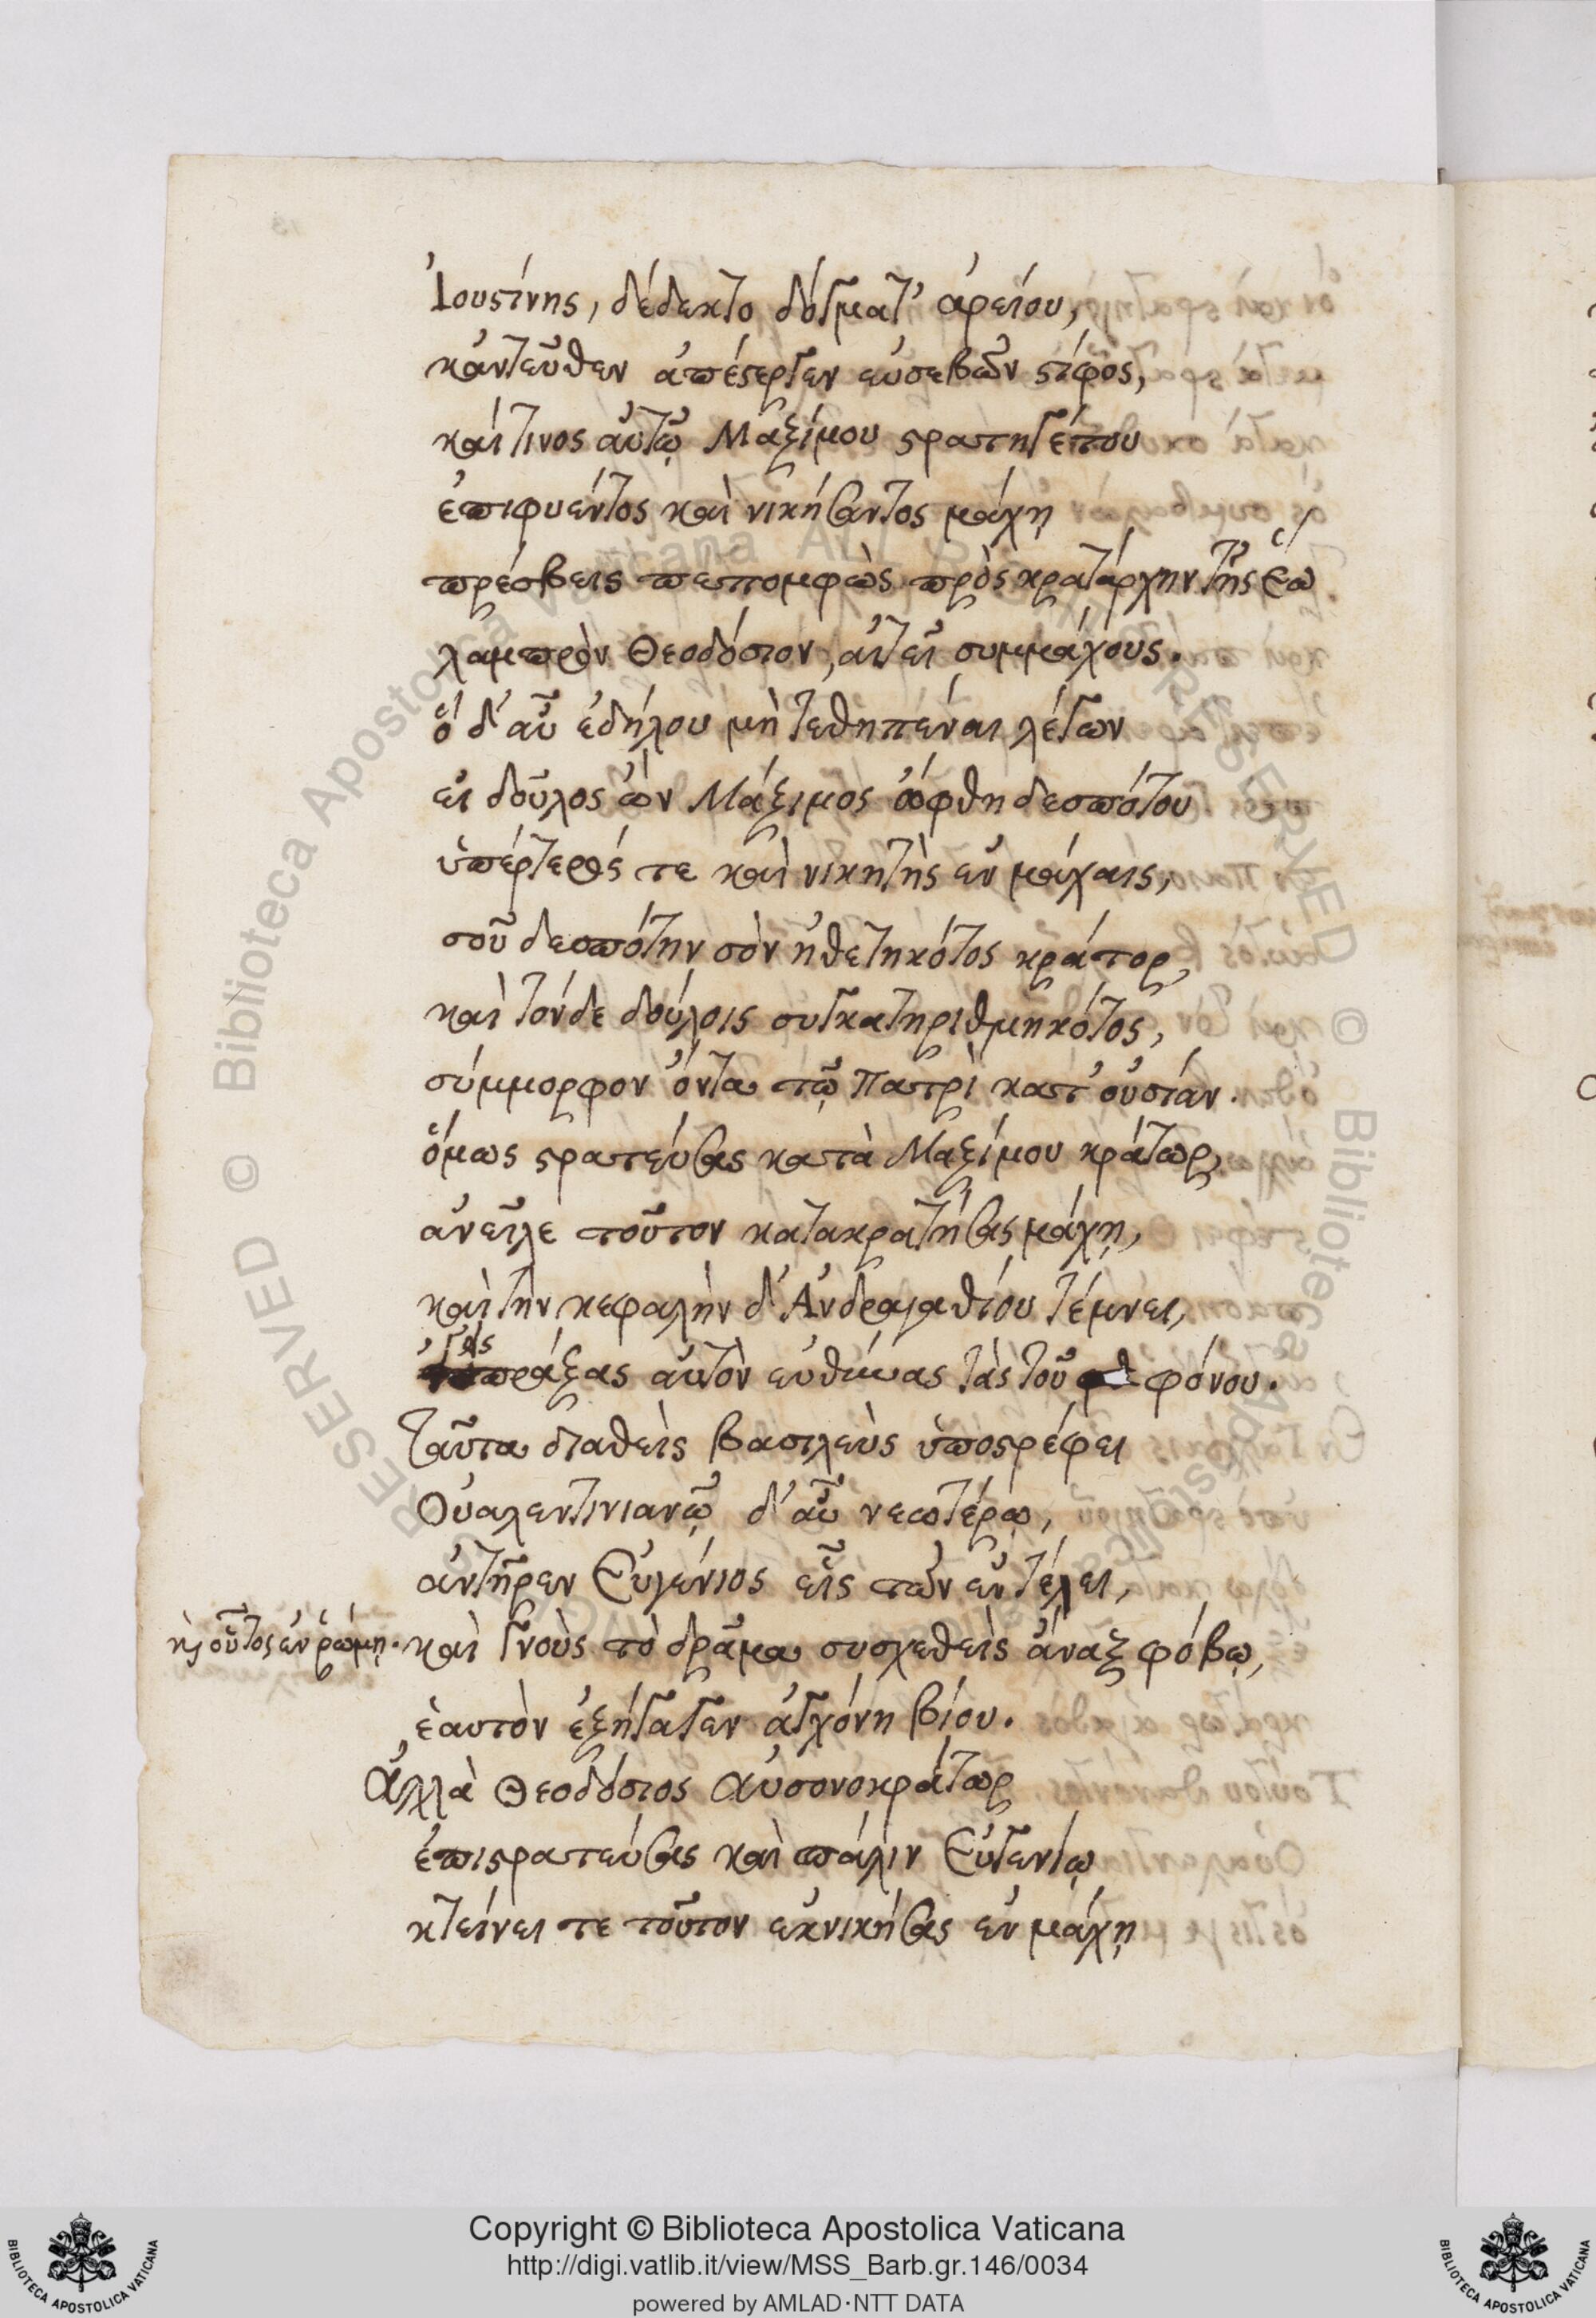 Ἰουστίνης, δέδεκτο δόγματ' ἀρείου,
κἀντεῦθεν ἀπέστεργεν εὐσεβῶν στίφος,
καί τινος αὐτῷ Μαξίμου στρατηγέτου
ἐπιφυέντος καὶ νικήσαντος μάχῃ
πρέσβεις πεπομφὼς πρὸς κρατάρχην τῆς ἕω
λαμπρὸν Θεοδόσιον, αἰτεῖ συμμάχους.
ὁ δ' αὖ ἐδήλου μὴ τεθηπέναι λέγων
εἰ δοῦλος ὢν Μάξιμος ὤφθη δεσπότου
ὑπέρτερός τε καὶ νικητὴς ἐν μάχαις,
σοῦ δεσπότην σὸν ἠθετηκότος κράτορ,
καὶ τόνδε δούλοις συγκατηριθμηκότος,
σύμμορφον ὄντα τῷ Πατρὶ κατ' οὐσίαν.
ὅμως στρατεύσας κατὰ Μαξίμου κράτωρ,
ἀνεῖλε τοῦτον κατακρατήσας μάχῃ,
καὶ τὴν κεφαλὴν δ' Ἀνδραγαθίου τέμνει,
πράξας αὐτὸν εὐθύνας τὰς τοῦ φόνου.
Ταῦτα διαθεὶς βασιλεὺς ὑποστρέφει
Οὐαλεντινιανῷ δ' αὖ νεωτέρῳ,
ἀντῆρεν Εὐγένιος εἷς τῶν ἐν τέλει,
κ οὗτος ἐν ῥώμῃ. καὶ γνοὺς τὸ δρᾶμα συσχεθεὶς ἄναξ φόβῳ,
ἑαυτὸν ἐξήγαγεν ἀγχόνῃ βίου.
Ἀλλὰ Θεοδόσιος Αὐσονοκράτωρ
ἐπιστρατεύσας καὶ πάλιν Εὐγενίῳ
κτείνει τε τοῦτον ἐκνικήσας ἐν μάχῃ
© Biblioteca Apostolica Vaticana ALL RIGHTS RESERVED
Copyright © Biblioteca Apostolica Vaticana
http://digi.vatlib.it/view/MSS_Barb.gr.146/0034
powered by AMLAD·NTT DATA
BIBLIOTECA APOSTOLICA VATICANA
BIBLIOTECA APOSTOLICA VATICANA